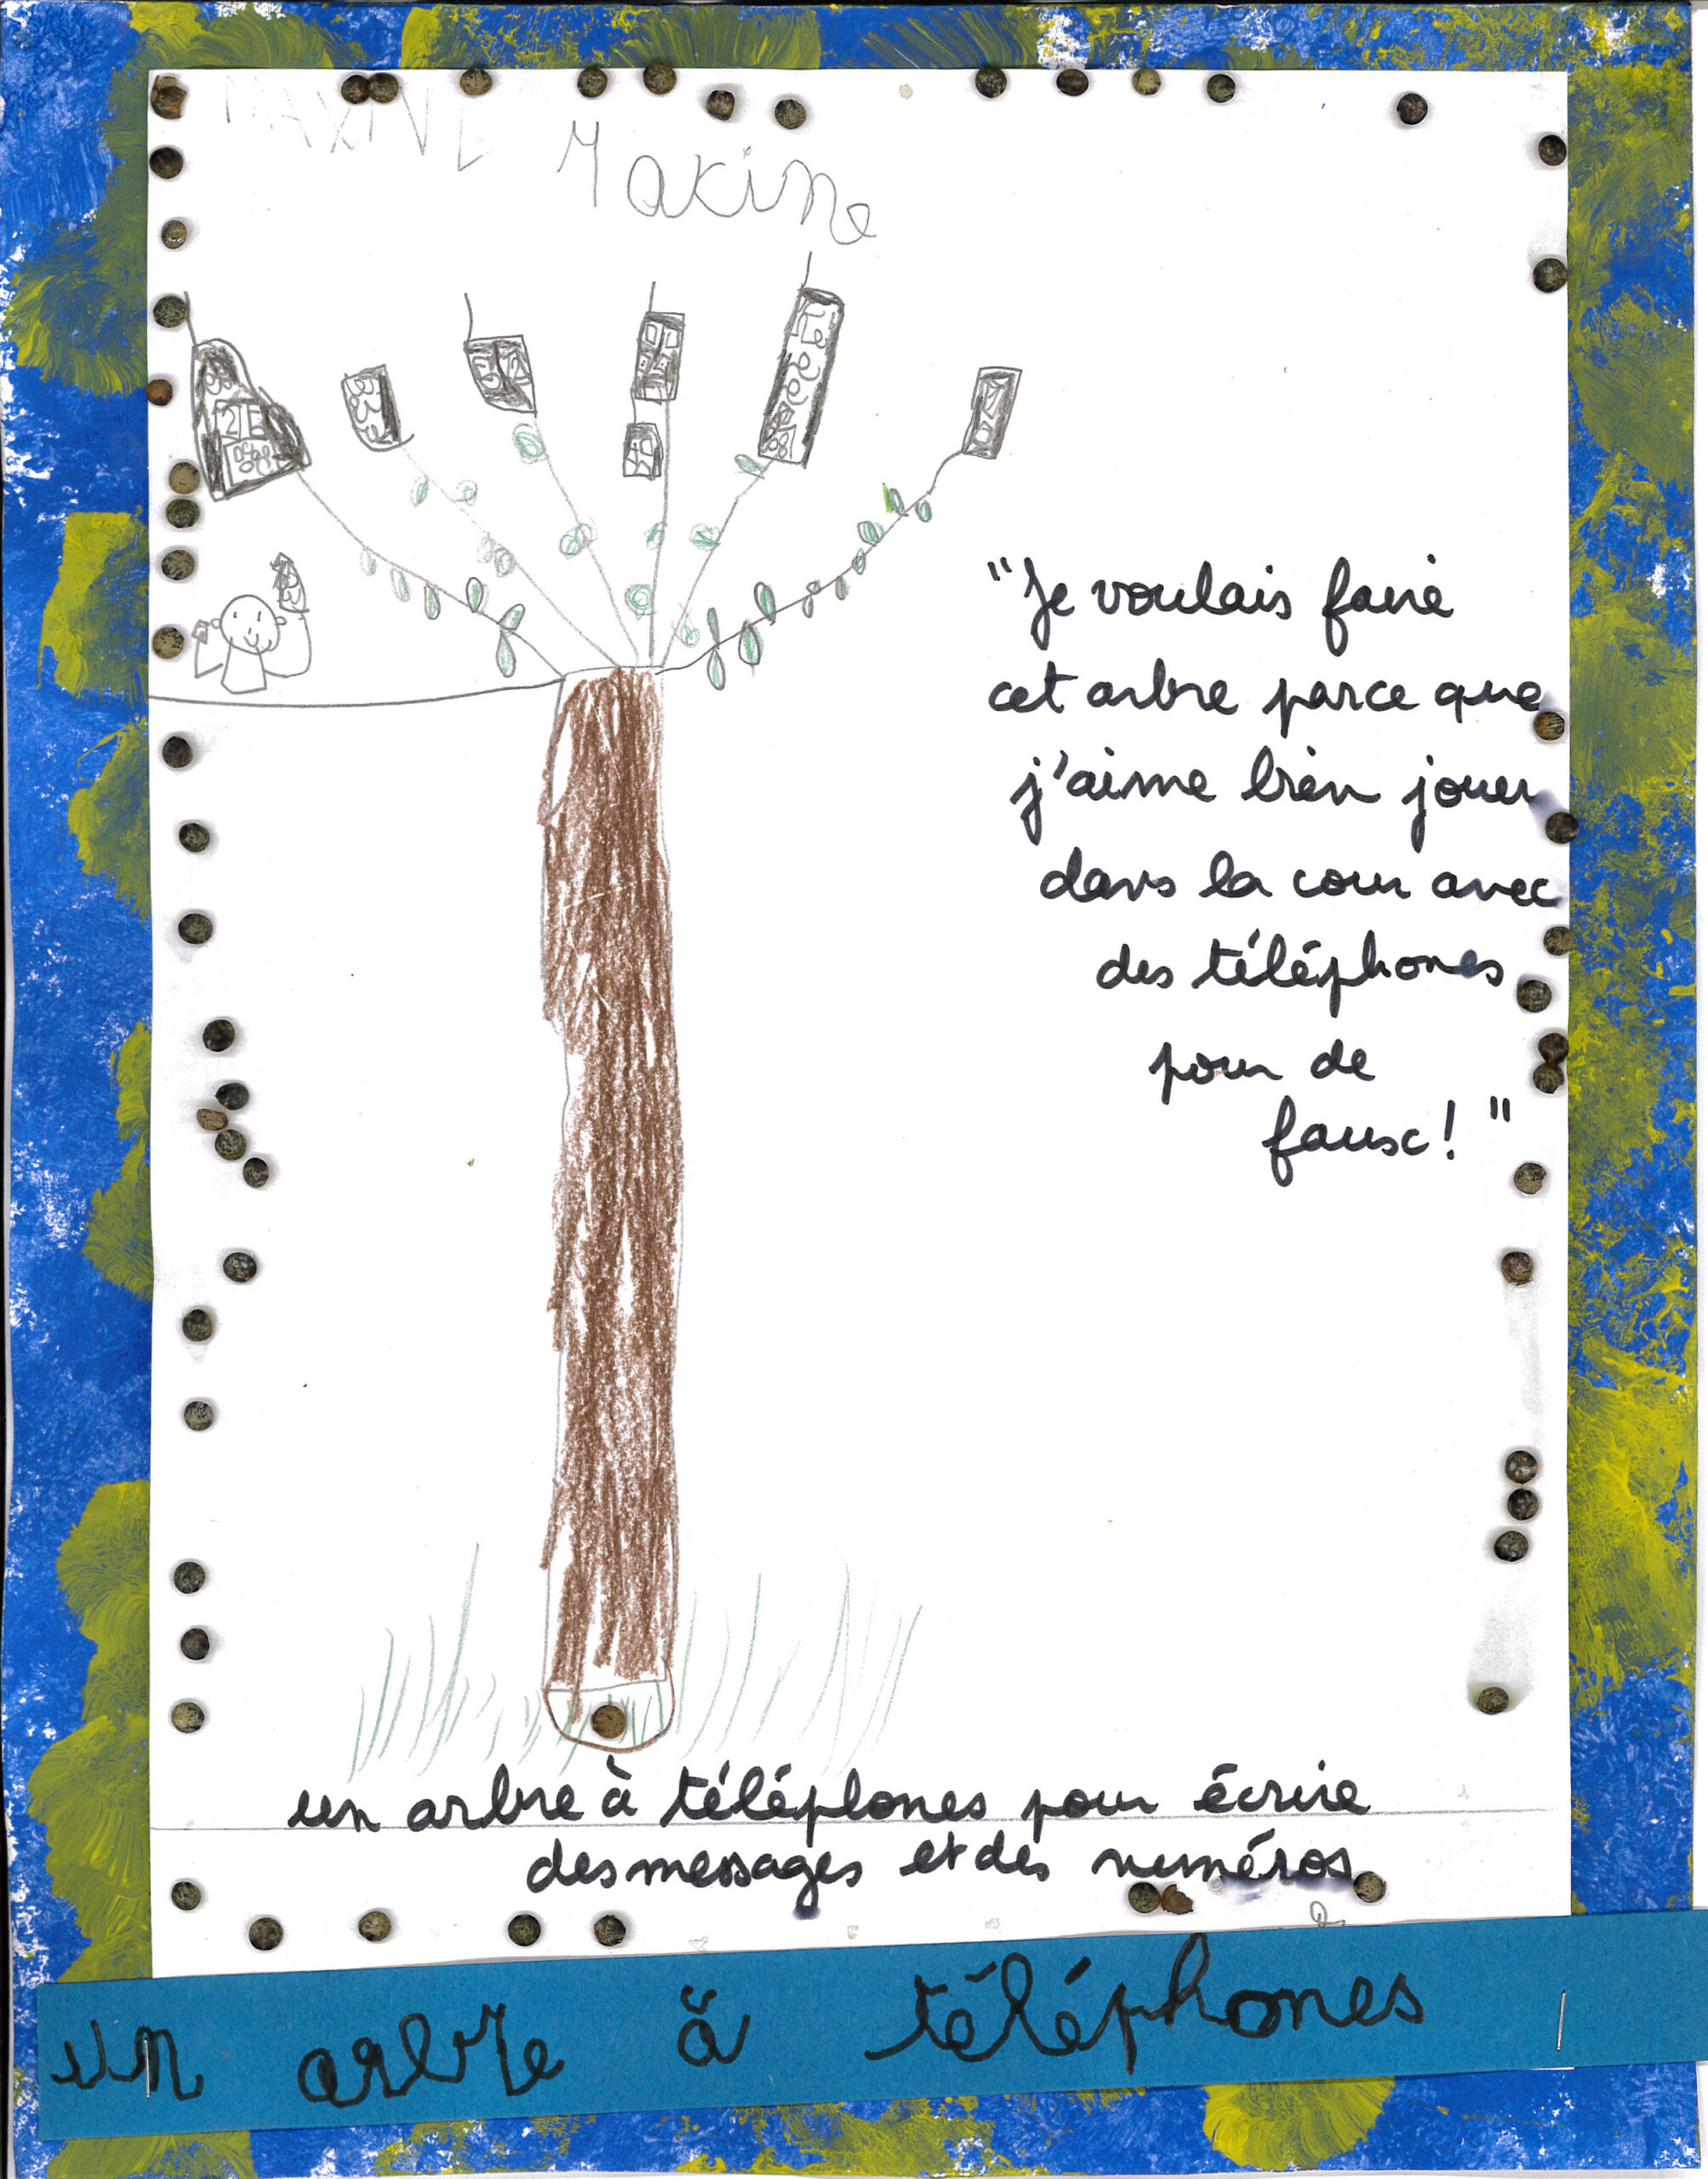 MAXINE Maxine
"Je voulais faire
cet arbre parce que
j'aime bien jouer
dans la cour avec
des téléphones
pour de
faux! "
un arbre à téléphones pour écrire
des messages et des numéros.
un arbre à téléphones